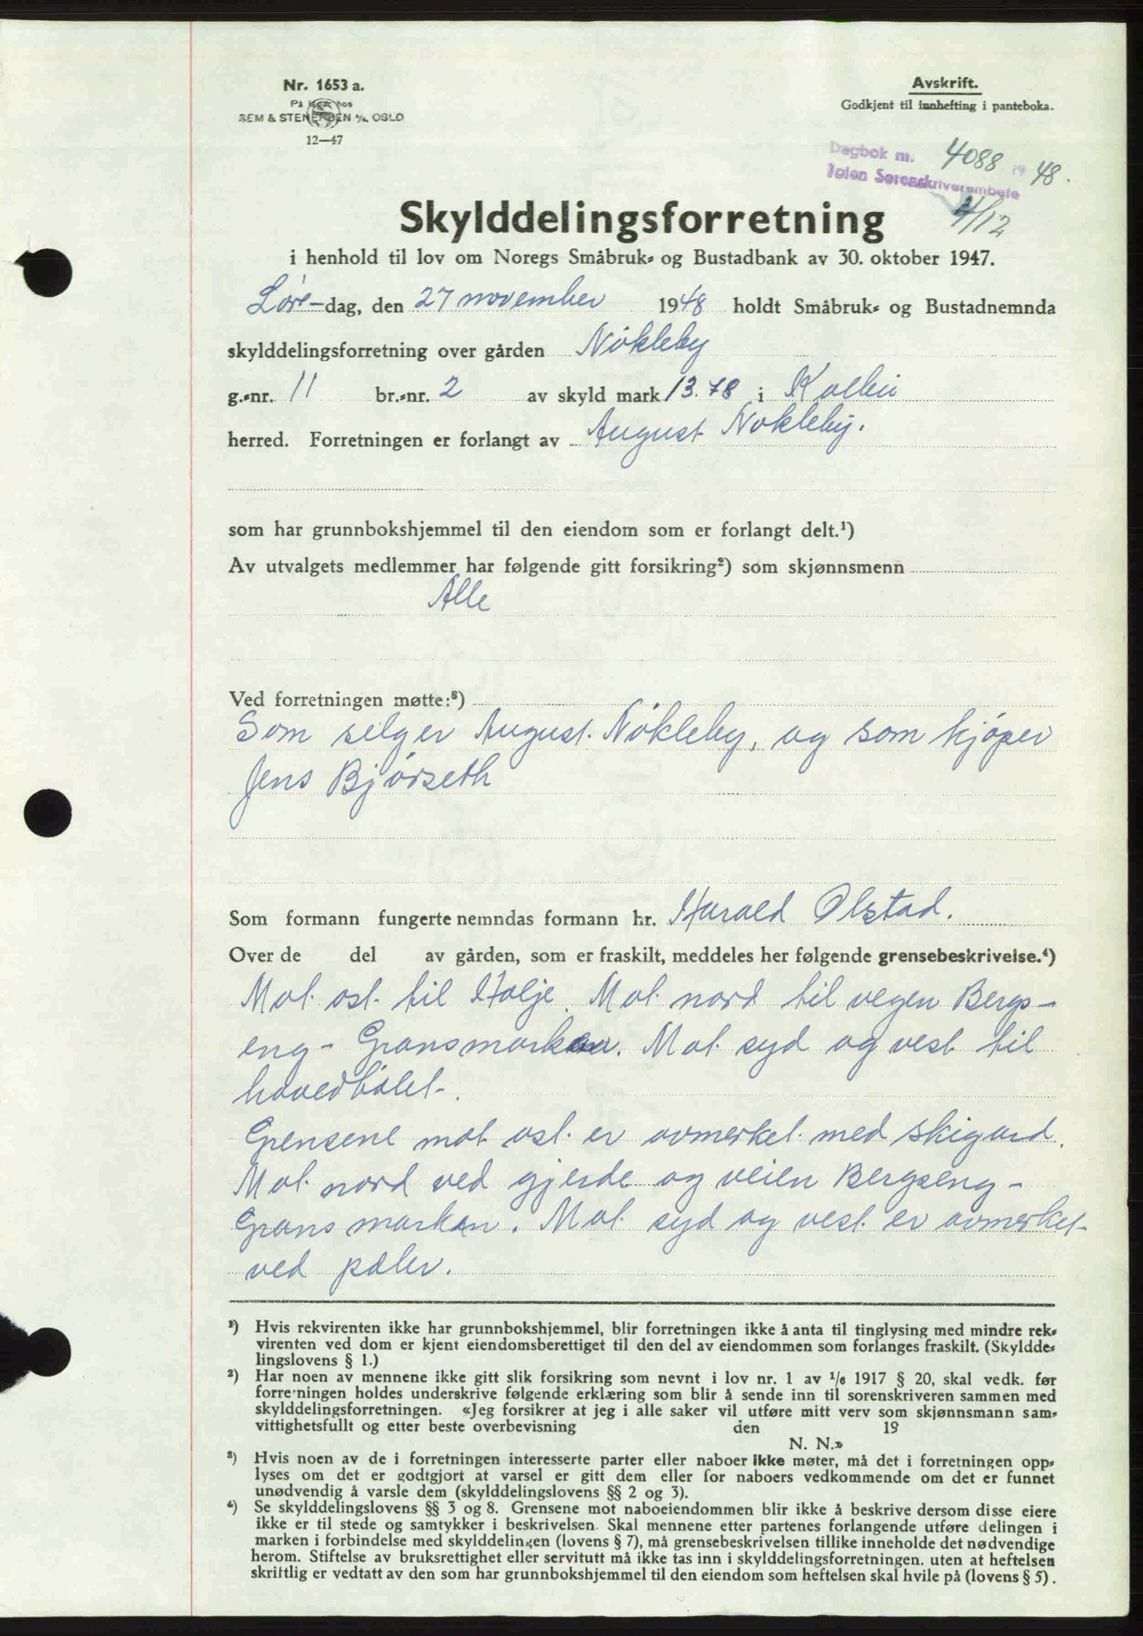 Nr. 1653 a.
På lager hos
SEM & STENERSEN A/s. OSLO
12—47
Avskrift.
Godkjent til innhefting i panteboka.
Dagbok nr. 4088 19 48.
Toten Sorenskriverembete
4/12
Skylddelingsforretning
i henhold til lov om Noregs Småbruk- og Bustadbank av 30. oktober 1947.
Løre-dag, den 27 november 1948 holdt Småbruk- og Bustadnemnda
skylddelingsforretning over gården Nökleby
g.-nr. 11 br.-nr. 2 av skyld mark 13.78 i Kolbu
herred. Forretningen er forlangt av August Nökleby.
som har grunnbokshjemmel til den eiendom som er forlangt delt.¹)
Av utvalgets medlemmer har følgende gitt forsikring²) som skjønnsmenn
Alle
Ved forretningen møtte:³)
Som selger August Nökleby, og som kjøper
Jens Bjørseth
Som formann fungerte nemndas formann hr. Harald Ølstad.
Over de del av gården, som er fraskilt, meddeles her følgende grensebeskrivelse.⁴)
Mot ost til Holje. Mot nord til vegen Bergs-
eng - Gransmarken. Mot syd og vest til
hovedbölet.
Grensene mot ost er avmerket med skigard.
Mot nord ved gjerde og veien Bergseng-
Gransmarken. Mot syd og vest er avmerket
ved pæler.
¹) Hvis rekvirenten ikke har grunnbokshjemmel, blir forretningen ikke å anta til tinglysing med mindre rek-
virenten ved dom er kjent eiendomsberettiget til den del av eiendommen som forlanges fraskilt. (Skyldde-
lingslovens § 1.)
²) Har noen av mennene ikke gitt slik forsikring som nevnt i lov nr. 1 av 1/6 1917 § 20, skal vedk. før
forretningen holdes underskrive følgende erklæring som blir å sende inn til sorenskriveren sammen med
skylddelingsforretningen. «Jeg forsikrer at jeg i alle saker vil utføre mitt verv som skjønnsmann sam-
vittighetsfullt og etter beste overbevisning den 19
N. N.»
³) Hvis noen av de i forretningen interesserte parter eller naboer ikke møter, må det i forretningen opp-
lyses om det er godtgjort at varsel er gitt dem eller for naboers vedkommende om det er funnet
unødvendig å varsle dem (skylddelingslovens §§ 2 og 3).
⁴) Se skylddelingslovens §§ 3 og 8. Grensene mot naboeiendommen blir ikke å beskrive dersom disse eiere
ikke er til stede og samtykker i beskrivelsen. Skal mennene etter partenes forlangende utføre delingen i
marken i forbindelse med skylddelingen (lovens § 7), må grensebeskrivelsen tillike inneholde det nødvendige
herom. Stiftelse av bruksrettighet eller servitutt må ikke tas inn i skylddelingsforretningen. uten at heftelsen
skriftlig er vedtatt av den som har grunnbokshjemmel til den eiendom som heftelsen skal hvile på (lovens § 5).